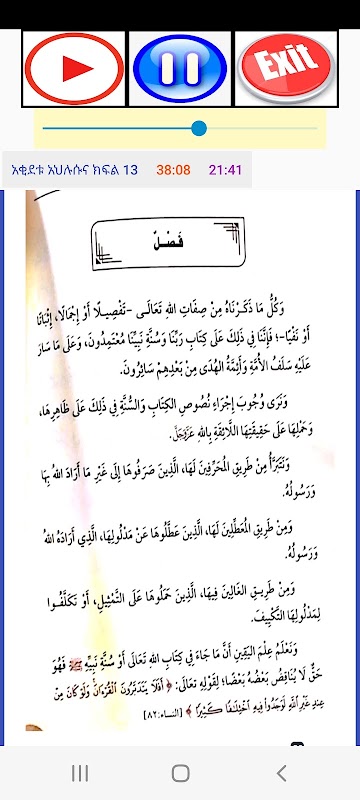 Exit
አቂደቱ አህሉሱና ክፍል 13 38:08 21:41
فَصْلٌ
وَكُلُّ مَا ذَكَرْنَاهُ مِنْ صِفَاتِ اللهِ تَعَالَى -تَفْصِيلًا أَوْ إِجْمَالًا، إِثْبَاتًا
أَوْ نَفْيًا-؛ فَإِنَّنَا فِي ذَلِكَ عَلَى كِتَابِ رَبِّنَا وَسُنَّةِ نَبِيِّنَا مُعْتَمِدُونَ، وَعَلَى مَا سَارَ
عَلَيْهِ سَلَفُ الأُمَّةِ وَأَئِمَّةُ الهُدَى مِنْ بَعْدِهِمْ سَائِرُونَ.
وَنَرَى وُجُوبَ إِجْرَاءِ نُصُوصِ الكِتَابِ وَالسُّنَّةِ فِي ذَلِكَ عَلَى ظَاهِرِهَا،
وَحَمْلِهَا عَلَى حَقِيقَتِهَا اللَّائِقَةِ بِاللهِ عَزَّوَجَلَّ.
وَنَتَبَرَّأُ مِنْ طَرِيقِ المُحَرِّفِينَ لَهَا، الَّذِينَ صَرَفُوهَا إِلَى غَيْرِ مَا أَرَادَ اللهُ بِهَا
وَرَسُولُهُ.
وَمِنْ طَرِيقِ المُعَطِّلِينَ لَهَا، الَّذِينَ عَطَّلُوهَا عَنْ مَدْلُولِهَا، الَّذِي أَرَادَهُ اللهُ
وَرَسُولُهُ.
وَمِنْ طَرِيقِ الغَالِينَ فِيهَا، الَّذِينَ حَمَلُوهَا عَلَى التَّمْثِيلِ، أَوْ تَكَلَّفُوا
لِمَدْلُولِهَا التَّكْيِيفَ.
وَنَعْلَمُ عِلْمَ اليَقِينِ أَنَّ مَا جَاءَ فِي كِتَابِ اللهِ تَعَالَى أَوْ سُنَّةِ نَبِيِّهِ ﷺ فَهُوَ
حَقٌّ لَا يُنَاقِضُ بَعْضُهُ بَعْضًا؛ لِقَوْلِهِ تَعَالَى: ﴿أَفَلَا يَتَدَبَّرُونَ الْقُرْءَانَ وَلَوْ كَانَ مِنْ
عِندِ غَيْرِ اللَّهِ لَوَجَدُوا فِيهِ اخْتِلَافًا كَثِيرًا﴾ [النساء: ٨٢]